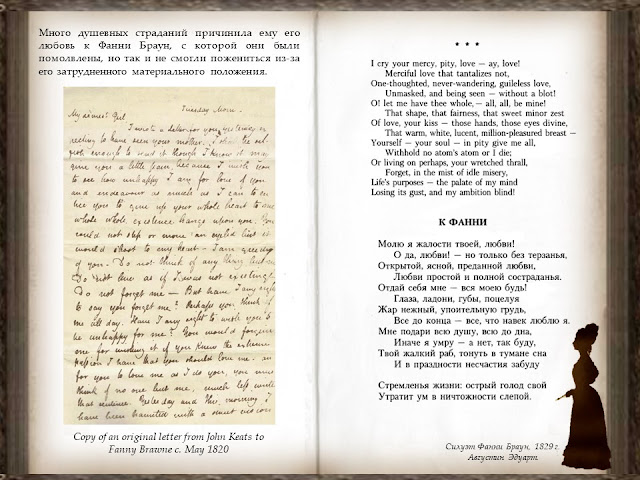 Много душевных страданий причинила ему его
любовь к Фанни Браун, с которой они были
помолвлены, но так и не смогли пожениться из-за
его затрудненного материального положения.
Tuesday Morn.
My dearest Girl
I wrote a letter for you yesterday ex-
pecting to have seen your mother. I shall be sel-
fish enough to send it though I know it may
give you a little pain, because I wish you
to see how unhappy I am for love of you
and endeavour as much as I can to en-
tice you to give up your whole heart to me
whose whole existence hangs upon you. You
could not step or move an eyelid but it
would shoot to my heart - I am greedy
of you - Do not think of any thing but me
Do not live as if I was not existing -
Do not forget me — But have I any right
to say you forget me? Perhaps you think of
me all day. Have I any right to wish you to
be unhappy for me? You would forgive
me for wishing it if you knew the extreme
passion I have that you should love me - and
for you to love me as I do you, you must
think of no one but me, much less write
that sentence. Yesterday and this morning I
have been haunted with a sweet vision
Copy of an original letter from John Keats to
Fanny Brawne c. May 1820
* * *
I cry your mercy, pity, love — ay, love!
Merciful love that tantalizes not,
One-thoughted, never-wandering, guileless love,
Unmasked, and being seen — without a blot!
O! let me have thee whole, — all, all, be mine!
That shape, that fairness, that sweet minor zest
Of love, your kiss — those hands, those eyes divine,
That warm, white, lucent, million-pleasured breast —
Yourself — your soul — in pity give me all,
Withhold no atom's atom or I die;
Or living on perhaps, your wretched thrall,
Forget, in the mist of idle misery,
Life's purposes — the palate of my mind
Losing its gust, and my ambition blind!
К ФАННИ
Молю я жалости твоей, любви!
О да, любви! — но только без терзанья,
Открытой, ясной, преданной любви,
Любви простой и полной состраданья.
Отдай себя мне — вся моею будь!
Глаза, ладони, губы, поцелуя
Жар нежный, упоительную грудь,
Все до конца — все, что навек люблю я.
Мне подари всю душу, всю до дна,
Иначе я умру — а нет, так буду,
Твой жалкий раб, тонуть в тумане сна
И в праздности несчастия забуду
Стремленья жизни: острый голод свой
Утратит ум в ничтожности слепой.
Силуэт Фанни Браун, 1829 г.
Августин Эдуарт.